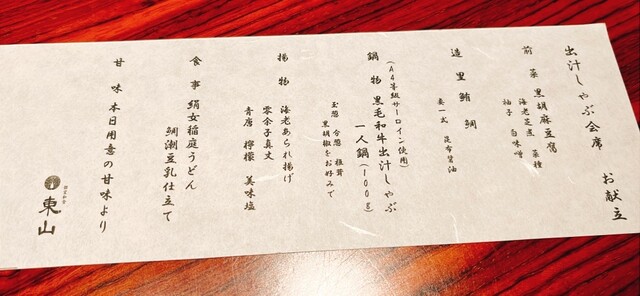 出汁しゃぶ会席 お献立
前菜 黒胡麻豆腐
海老芝煮 菜種
柚子 白味噌
造里 鮪 鯛
妻一式 昆布醤油
鍋物 黒毛和牛出汁しゃぶ
(A4等級サーロイン使用)
一人鍋(100g)
玉葱 今葱 椎茸
黒胡椒をお好みで
揚物 海老あられ揚げ
零余子真丈
青唐 檸檬 美味塩
食事 絹女稲庭うどん
鯛潮豆乳仕立て
甘味 本日用意の甘味より
東山